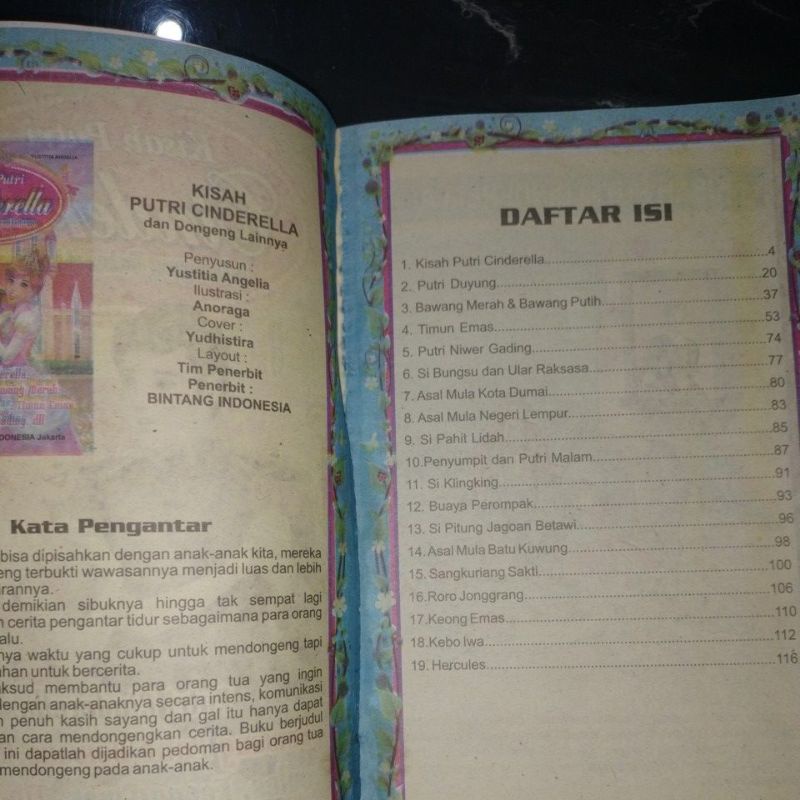 YUSTITIA ANGELIA
Putri
erella
KISAH
PUTRI CINDERELLA
dan Dongeng Lainnya
Penyusun :
Yustitia Angelia
Ilustrasi :
Anoraga
Cover :
Yudhistira
Layout :
Tim Penerbit
Penerbit :
BINTANG INDONESIA
DONESIA Jakarta
Kata Pengantar
bisa dipisahkan dengan anak-anak kita, mereka
eng terbukti wawasannya menjadi luas dan lebih
rannya.
demikian sibuknya hingga tak sempat lagi
n cerita pengantar tidur sebagaimana para orang
alu.
nya waktu yang cukup untuk mendongeng tapi
ahan untuk bercerita.
aksud membantu para orang tua yang ingin
dengan anak-anaknya secara intens, komunikasi
n penuh kasih sayang dan gal itu hanya dapat
an cara mendongengkan cerita. Buku berjudul
ini dapatlah dijadikan pedoman bagi orang tua
mendongeng pada anak-anak.
DAFTAR ISI
1. Kisah Putri Cinderella 4
2. Putri Duyung 20
3. Bawang Merah & Bawang Putih 37
4. Timun Emas 53
5. Putri Niwer Gading 74
6. Si Bungsu dan Ular Raksasa 77
7. Asal Mula Kota Dumai 80
8. Asal Mula Negeri Lempur 83
9. Si Pahit Lidah 85
10.Penyumpit dan Putri Malam 87
11. Si Klingking 91
12. Buaya Perompak 93
13. Si Pitung Jagoan Betawi 96
14. Asal Mula Batu Kuwung 98
15. Sangkuriang Sakti 100
16.Roro Jonggrang 106
17.Keong Emas 110
18.Kebo Iwa 112
19. Hercules 116